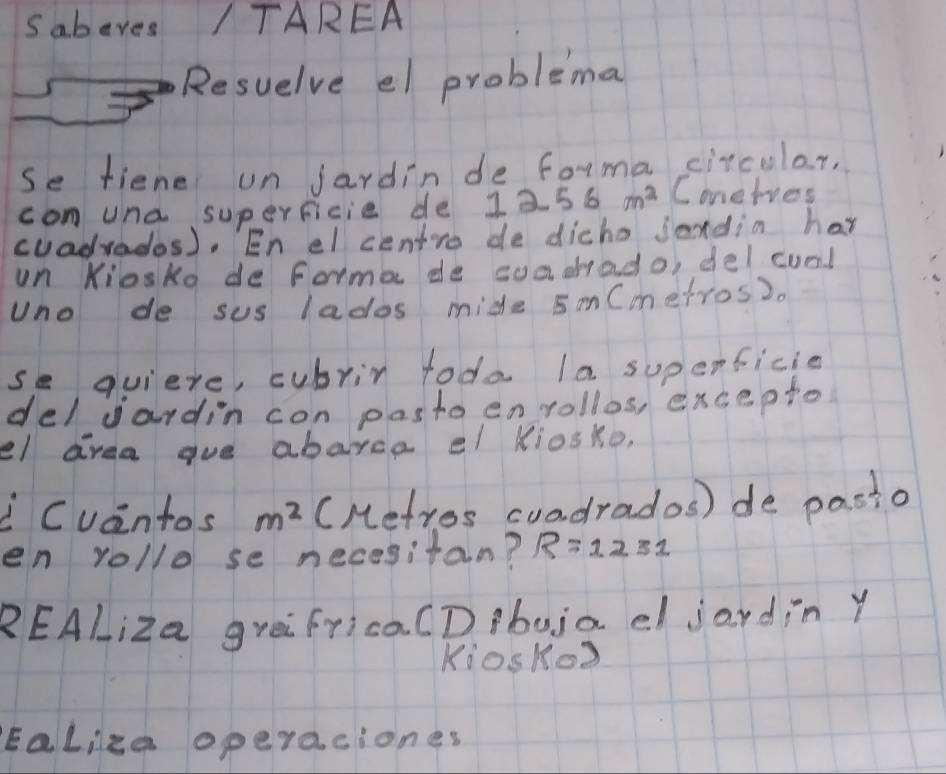 saberes / TAREA
Resuelve el problema
se tiene un jardin de forma circular.
con una superficie de 1256 m² (metros
cuadrados). En el centro de dicho jardin hay
un Kiosko de Forma de cuadrado, del cual
uno de sus lados mide 5m(metros).
se quiere, cubrir toda la superficie
del jardin con pasto en rollos, excepto
el área que abarca el Kiosko.
¿Cuántos m² (Metros cuadrados) de pasto
en rollo se necesitan? R=1231
REALiza gráifrica (Dibuja el jardín y
Kiosko)
EaLiza operaciones